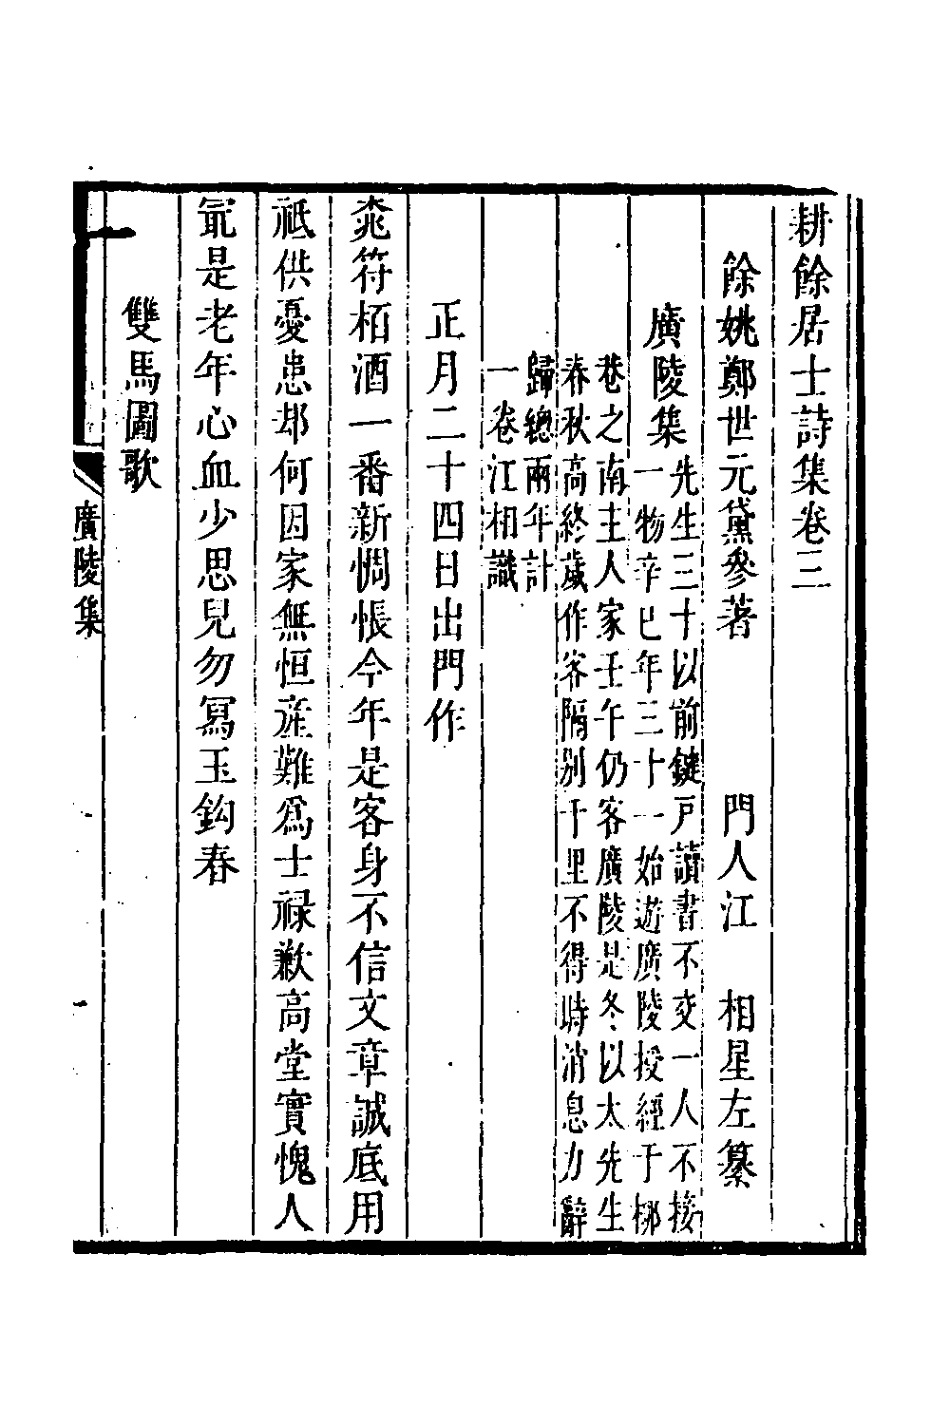 耕餘居士詩集卷三
餘姚鄭世元黛參著　門人江　相星左纂
廣陵集
先生三十以前鍵戸讀書不交一人不接
一物辛巳年三十一始遊廣陵授經于柳
巷之南主人家壬午仍客廣陵是冬以太先生
春秋高終歲作客隔别千里不得時消息力辭
歸總兩年計
一卷江相識
正月二十四日出門作
桃符栢酒一番新惆悵今年是客身不信文章誠底用
祗供憂患却何因家無恒産難爲士禄歉高堂實愧人
冣是老年心血少思兒勿冩玉鈎春
雙馬圖歌
廣陵集